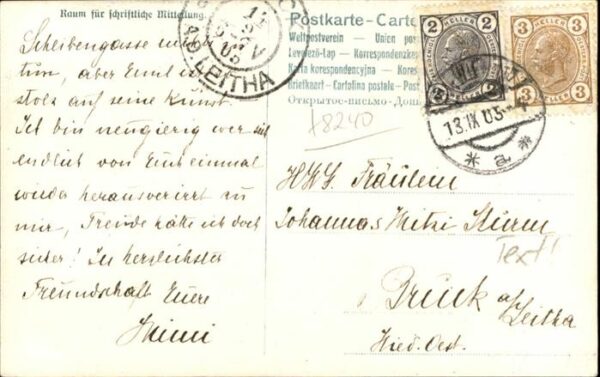 Raum für schriftliche Mitteilung.
Scheibengasse
tun, aber Emil ist
stolz auf seine Kunst.
Ich bin neugierig wer sich
endlich von Euch einmal
wieder herausverirrt zu
mir, Freude hätte ich doch
sicher! In herzlichster
Freundschaft Euere
Mimi
A.D. LEITHA
Postkarte - Carte
Weltpostverein — Union
Levelező-Lap — Korrespondenzkarte
Karta korespondencyjna — Kores
Briefkarte — Cartolina postale — Post
Открытое-письмо-
2 HELLER 2
3 HELLER 3
3 3
13.IX.05
18240
H.W.G. Fräulein
Johanna & Mitzi Sturm
Text!
Bruck a/
Leitha
Nied. Oest.